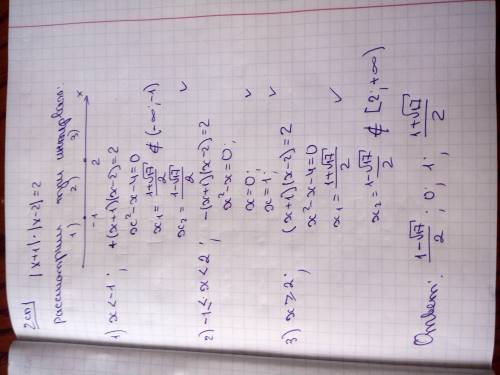 2 сп)
|x+1|·|x-2|=2
Рассмотрим три интервала:
1) 2) 3)
-1 2 x
1) x<-1; +(x+1)(x-2)=2
x²-x-4=0
x₁=\frac{1+√17}{2} ∉ (-∞;-1)
x₂=\frac{1-√17}{2} ✓
2) -1≤x<2; -(x+1)(x-2)=2
x²-x=0;
x=0; ✓
x=1; ✓
3) x≥2; (x+1)(x-2)=2
x²-x-4=0
x₁=\frac{1+√17}{2} ✓
x₂=\frac{1-√17}{2} ∉ [2;+∞)
Ответ: \frac{1-√17}{2}; 0; 1; \frac{1+√17}{2}